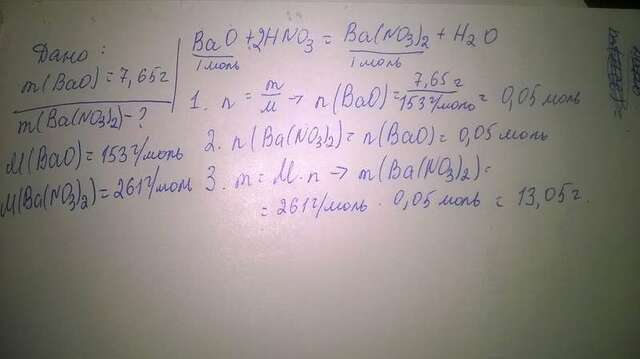 Дано:
m(BaO) = 7,65г
m(Ba(NO3)2) - ?
M(BaO) = 153г/моль
M(Ba(NO3)2) = 261г/моль
BaO + 2HNO3 = Ba(NO3)2 + H2O
1моль 1моль
1. n = m/M → n(BaO) = 7,65г/153г/моль = 0,05 моль
2. n(Ba(NO3)2) = n(BaO) = 0,05 моль
3. m = M · n → m(Ba(NO3)2) =
= 261г/моль · 0,05 моль = 13,05г.